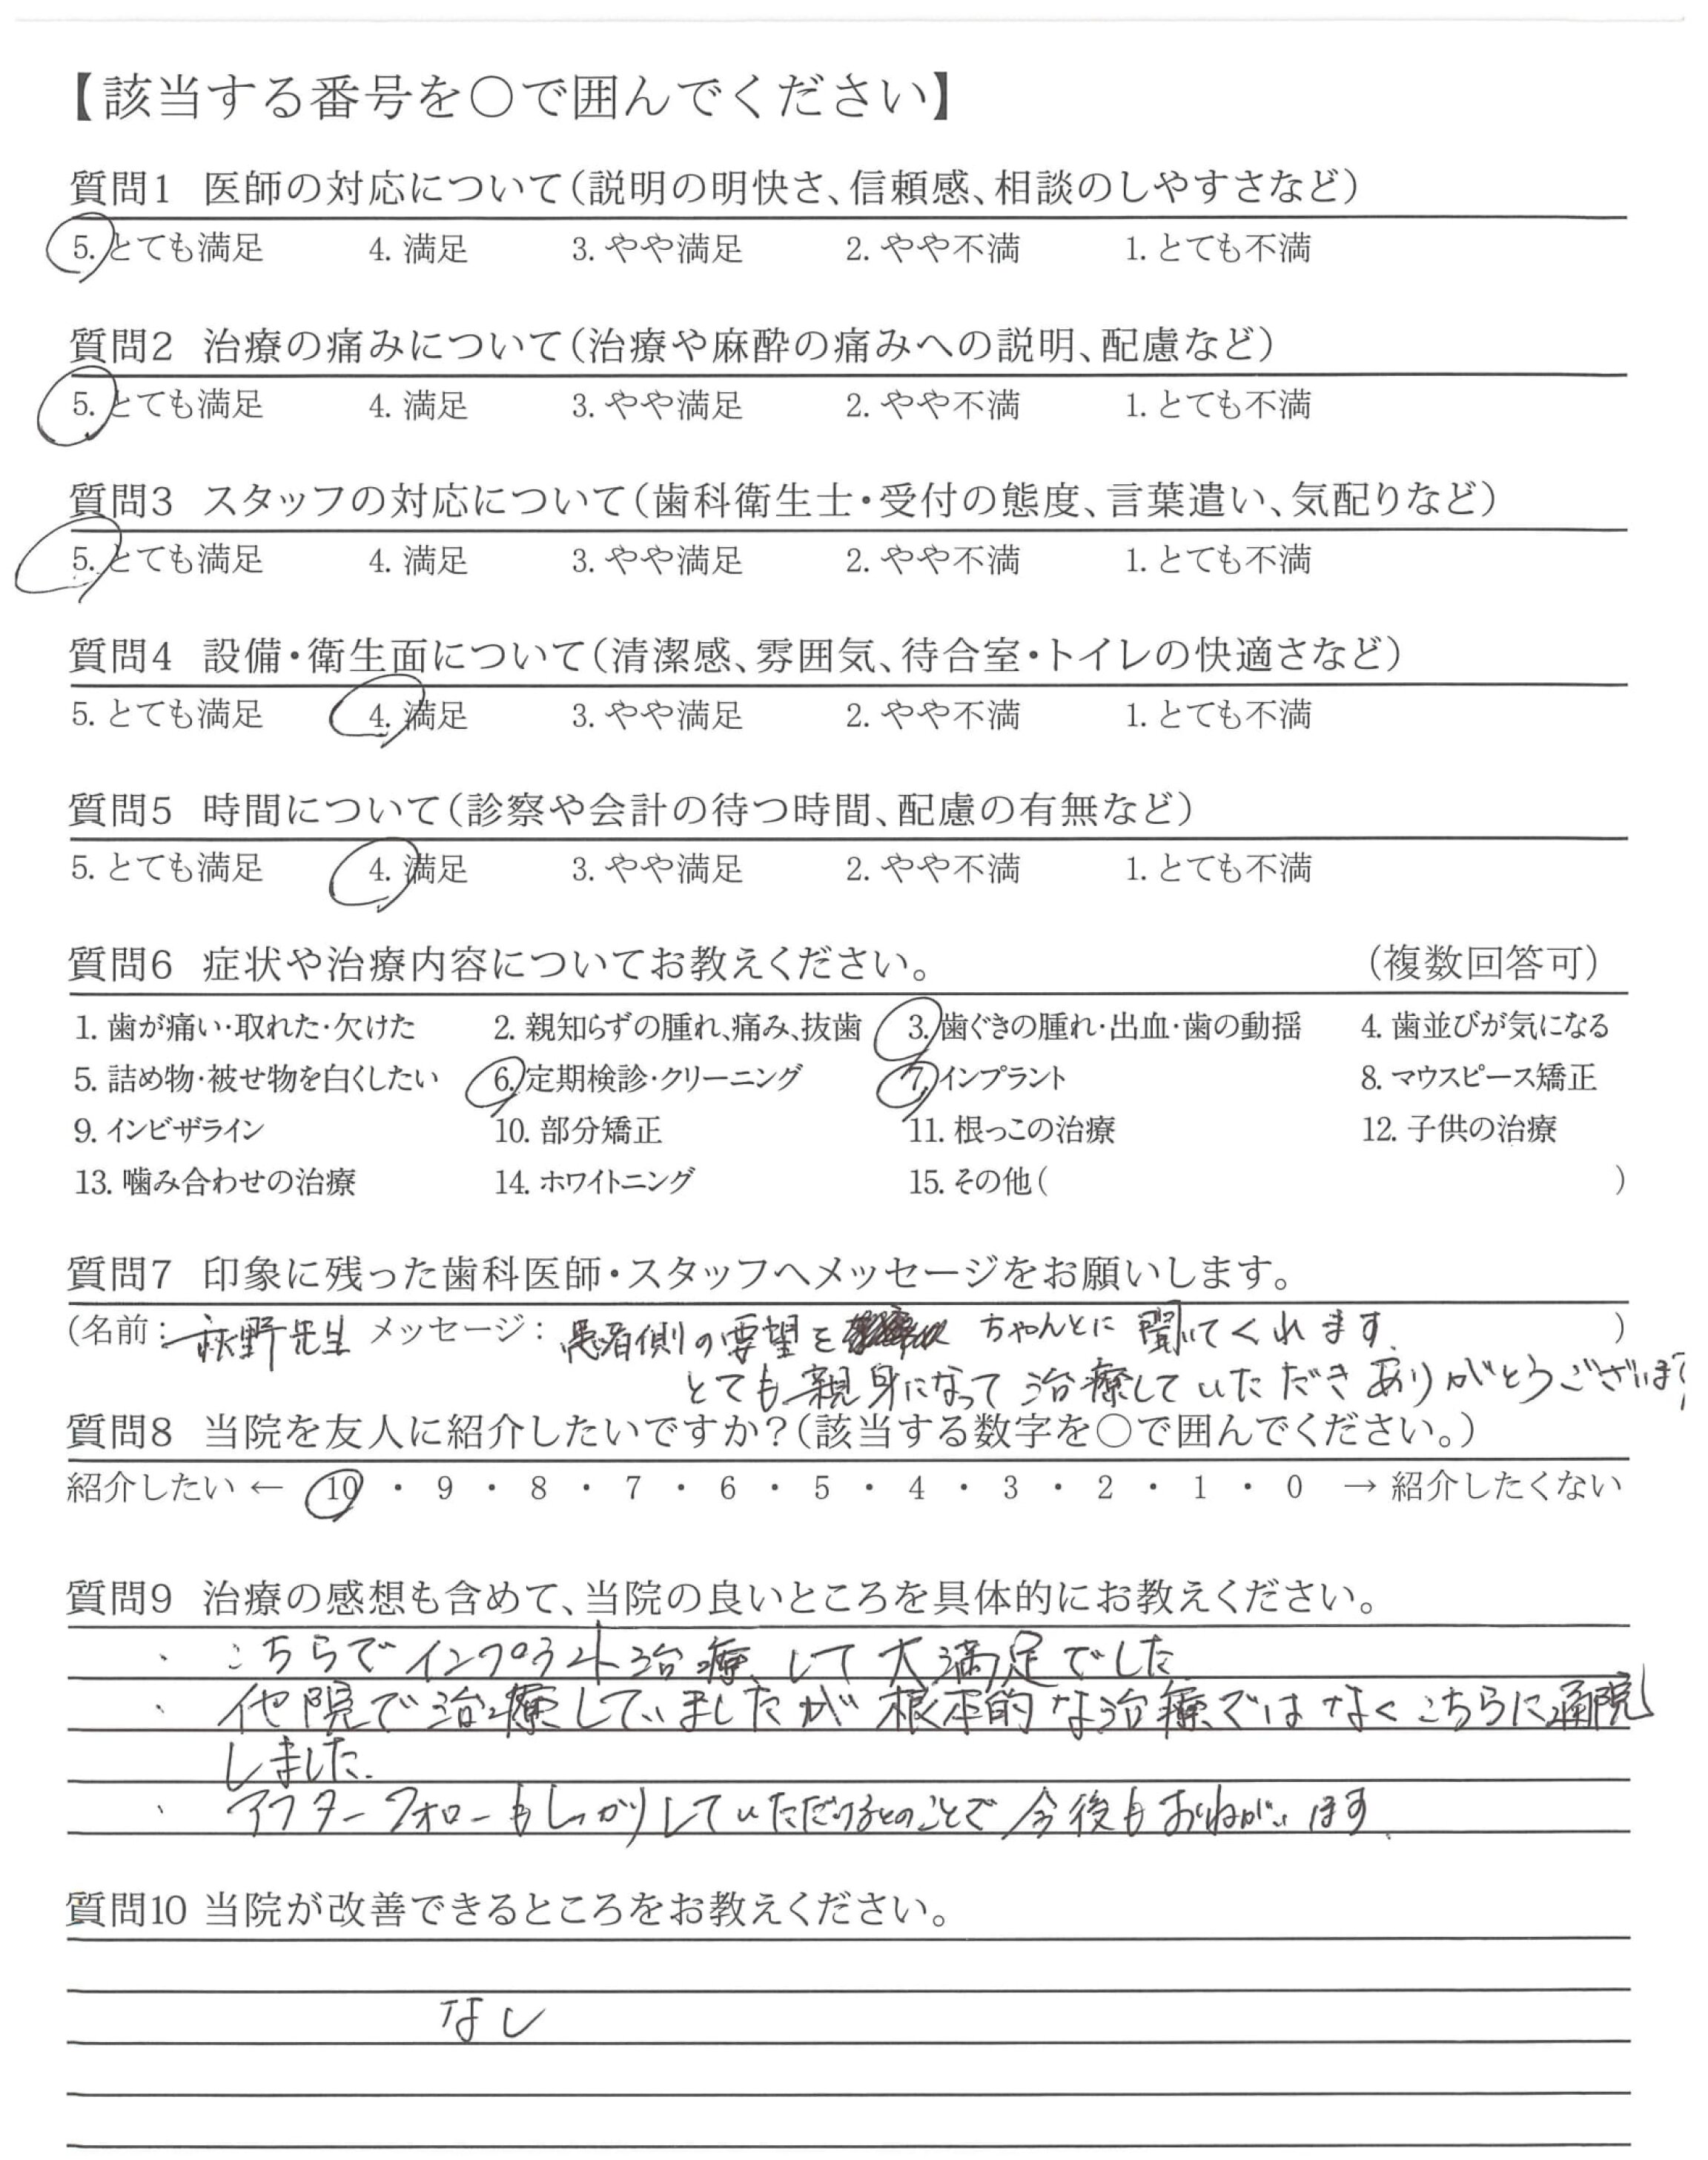 【該当する番号を○で囲んでください】
質問1 医師の対応について(説明の明快さ、信頼感、相談のしやすさなど)
5. とても満足 4. 満足 3. やや満足 2. やや不満 1. とても不満
質問2 治療の痛みについて(治療や麻酔の痛みへの説明、配慮など)
5. とても満足 4. 満足 3. やや満足 2. やや不満 1. とても不満
質問3 スタッフの対応について(歯科衛生士・受付の態度、言葉遣い、気配りなど)
5. とても満足 4. 満足 3. やや満足 2. やや不満 1. とても不満
質問4 設備・衛生面について(清潔感、雰囲気、待合室・トイレの快適さなど)
5. とても満足 4. 満足 3. やや満足 2. やや不満 1. とても不満
質問5 時間について(診察や会計の待つ時間、配慮の有無など)
5. とても満足 4. 満足 3. やや満足 2. やや不満 1. とても不満
質問6 症状や治療内容についてお教えください。 (複数回答可)
1. 歯が痛い・取れた・欠けた 2. 親知らずの腫れ、痛み、抜歯 3. 歯ぐきの腫れ・出血・歯の動揺 4. 歯並びが気になる
5. 詰め物・被せ物を白くしたい 6. 定期検診・クリーニング 7. インプラント 8. マウスピース矯正
9. インビザライン 10. 部分矯正 11. 根っこの治療 12. 子供の治療
13. 噛み合わせの治療 14. ホワイトニング 15. その他( )
質問7 印象に残った歯科医師・スタッフへメッセージをお願いします。
(名前: 野先生 メッセージ: 患者側の要望を ちゃんとに 聞いてくれます. )
とても親身になって 治療していただき ありがとうございます
質問8 当院を友人に紹介したいですか?(該当する数字を○で囲んでください。)
紹介したい ← 10 ・ 9 ・ 8 ・ 7 ・ 6 ・ 5 ・ 4 ・ 3 ・ 2 ・ 1 ・ 0 → 紹介したくない
質問9 治療の感想も含めて、当院の良いところを具体的にお教えください。
・ こちらでインプラント治療して 大満足でした
・ 他院で治療していましたが 根本的な治療ではなく こちらに通院
しました.
・ アフターフォローもしっかりしていただけるとのことで 今後もおねがいします.
質問10 当院が改善できるところをお教えください。
なし